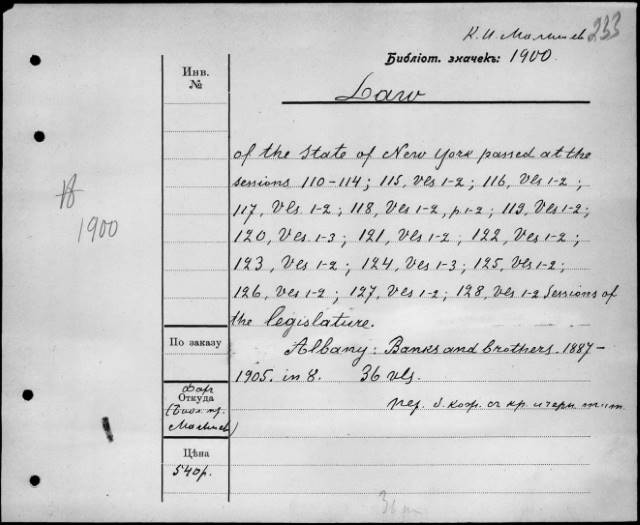 К. И. Малышев 233
Библіот. значекъ: 1900.
Инв.
№
Law
of the State of New York passed at the
sessions 110-114; 115, vls 1-2; 116, vls 1-2;
117, vls. 1-2; 118, vls 1-2, p. 1-2; 119, vls 1-2;
120, vls. 1-3; 121, vls 1-2; 122, vls 1-2;
123, vls 1-2; 124, vls 1-3; 125, vls 1-2;
126, vls 1-2; 127, vls 1-2; 128, vls 1-2 Sessions of
the legislature.
1900
По заказу
Albany: Banks and brothers. 1887-
1905. in 8. 36 vls.
Откуда
Малышев)
пер. кор. съ кр. и черн. тит.
Цѣна
540р.